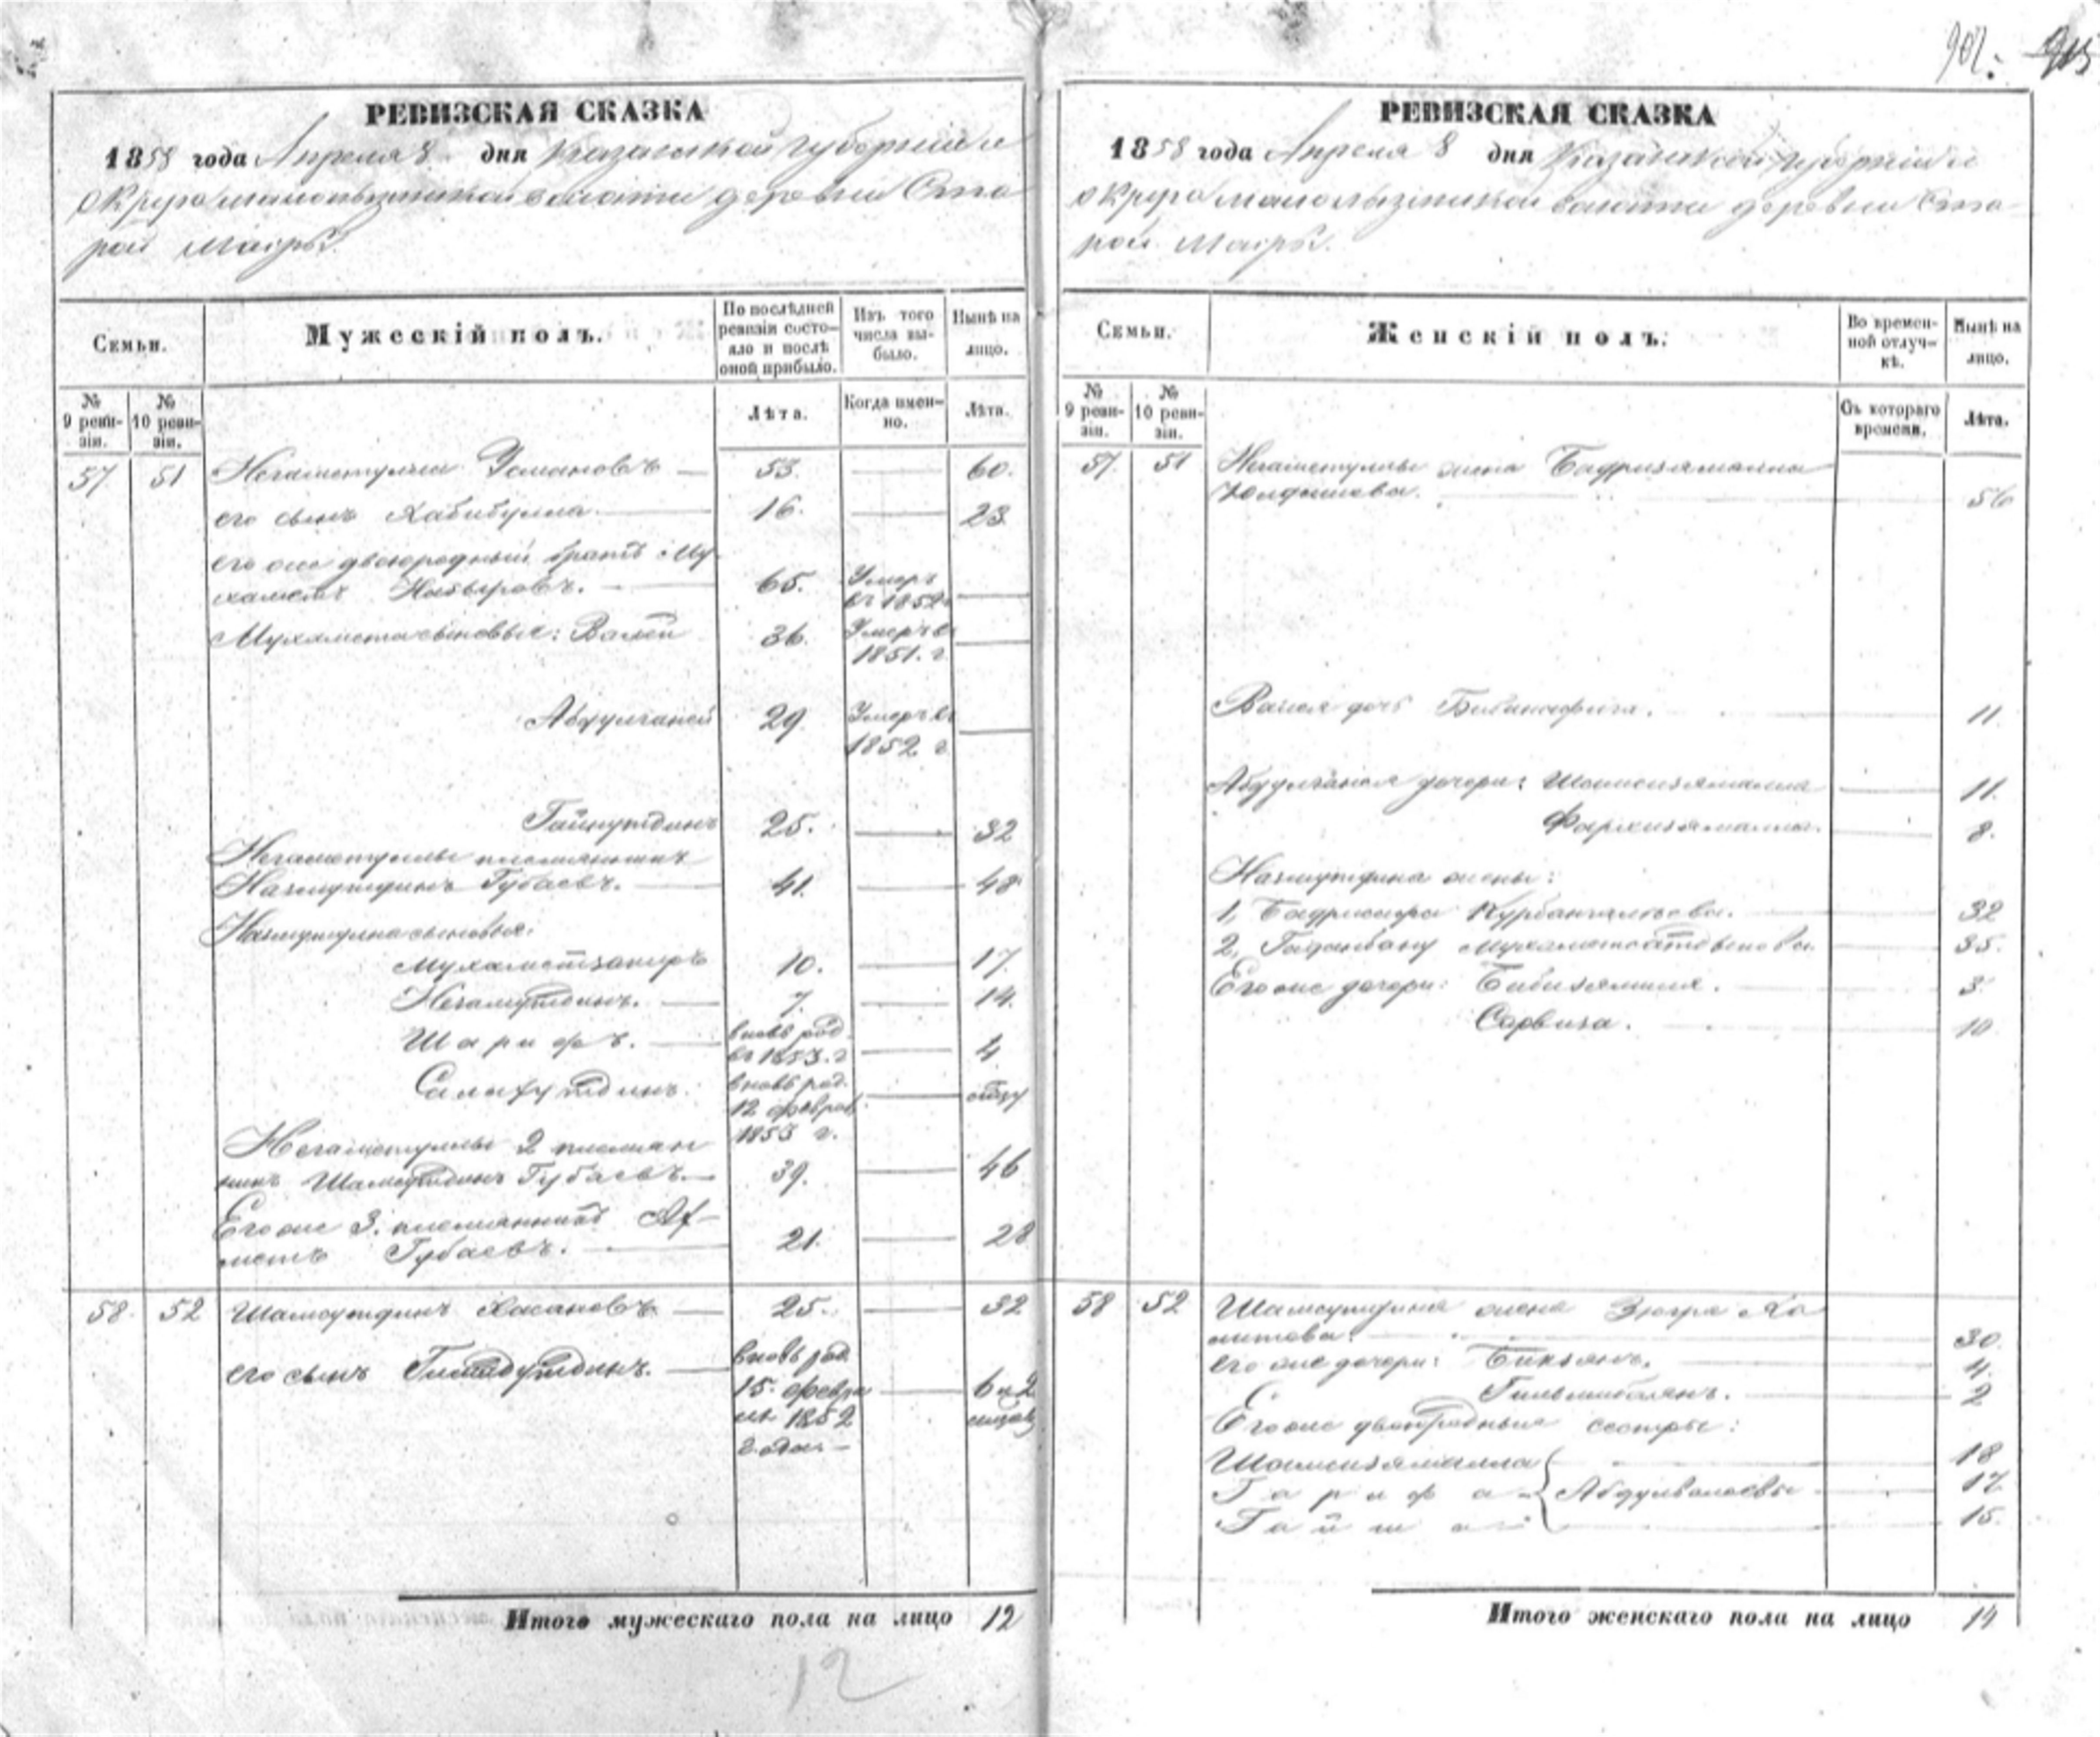 902.
РЕВИЗСКАЯ СКАЗКА
1858 года Апреля 8 дня Казанской губернии и
округа волости деревни Ста
рой Масры.
Семьи.
Мужескій полъ.
По послѣдней ревизіи состо-
яло и послѣ
оной прибыло.
Изъ того
числа вы-
было.
Нынѣ на
лицо.
№
9 реви-
зіи.
№
10 реви-
зіи.
Лѣта.
Когда имен-
но.
Лѣта.
57 51 Негаметулла Усмановъ — 53. — 60.
его сынъ Хабибулла. — 16. — 23.
его же двоюродный братъ Му-
хаметъ Навыровъ. — 65. Умеръ
въ 1852 —
Мухамета сыновья: Валей 36. Умеръ въ
1851. г. —
Абдулганей 29. Умеръ въ
1852 г. —
Гайнутдинъ 25. — 32
Негаметуллы племянникъ
Назмутдинъ Губаевъ. — 41. — 48
Назмутдина сыновья:
Мухаметзакиръ 10. — 17.
Негамутдинъ. — 7. — 14.
Шарифъ. — вновь род.
въ 1853. г — 4
вновь род.
12 феврал
1853 г. —
Негаметуллы 2 племян
никъ Шамсутдинъ Губаевъ. — 39. — 46
Его же 3. племянникъ Ах-
метъ Губаевъ. — 21. — 28
58. 52 Шамсутдинъ Хасановъ — 25. — 32
его сынъ — вновь род.
15. февра
ля 1852
года — — 6 и 2
месяц
Итого мужескаго пола на лицо 12
12
РЕВИЗСКАЯ СКАЗКА
1858 года Апреля 8 дня Казанской губерніи и
округа волости деревни Ста-
рой Масры.
Семьи.
Женскій полъ.
Во времен-
ной отлуч-
кѣ.
Нынѣ на
лицо.
№
9 реви-
зіи.
№
10 реви-
зіи.
Съ котораго
времени.
Лѣта.
57. 51 Негаметуллы жена Бадризямалла
Юлдашева. — 56
Валея дочь — 11.
Абдулганея дочери: Шамсизямалла — 11.
Фархизямалла. — 8.
Назмутдина жены:
1, Бадрисафа Курбангалеева. — 32
2, — 35.
Его же дочери: Бибизямиля. — 3.
Сарвиза. — 10
58 52 Шамсутдина жена Зюгра Ха
митова. — 30.
его же дочери: — 4.
— 2
Его же двоюродныя сестры:
Шамсизямалла — 18
Гарифа — Абдулвалеевы — 17.
Гайша — 15.
Итого женскаго пола на лицо 14